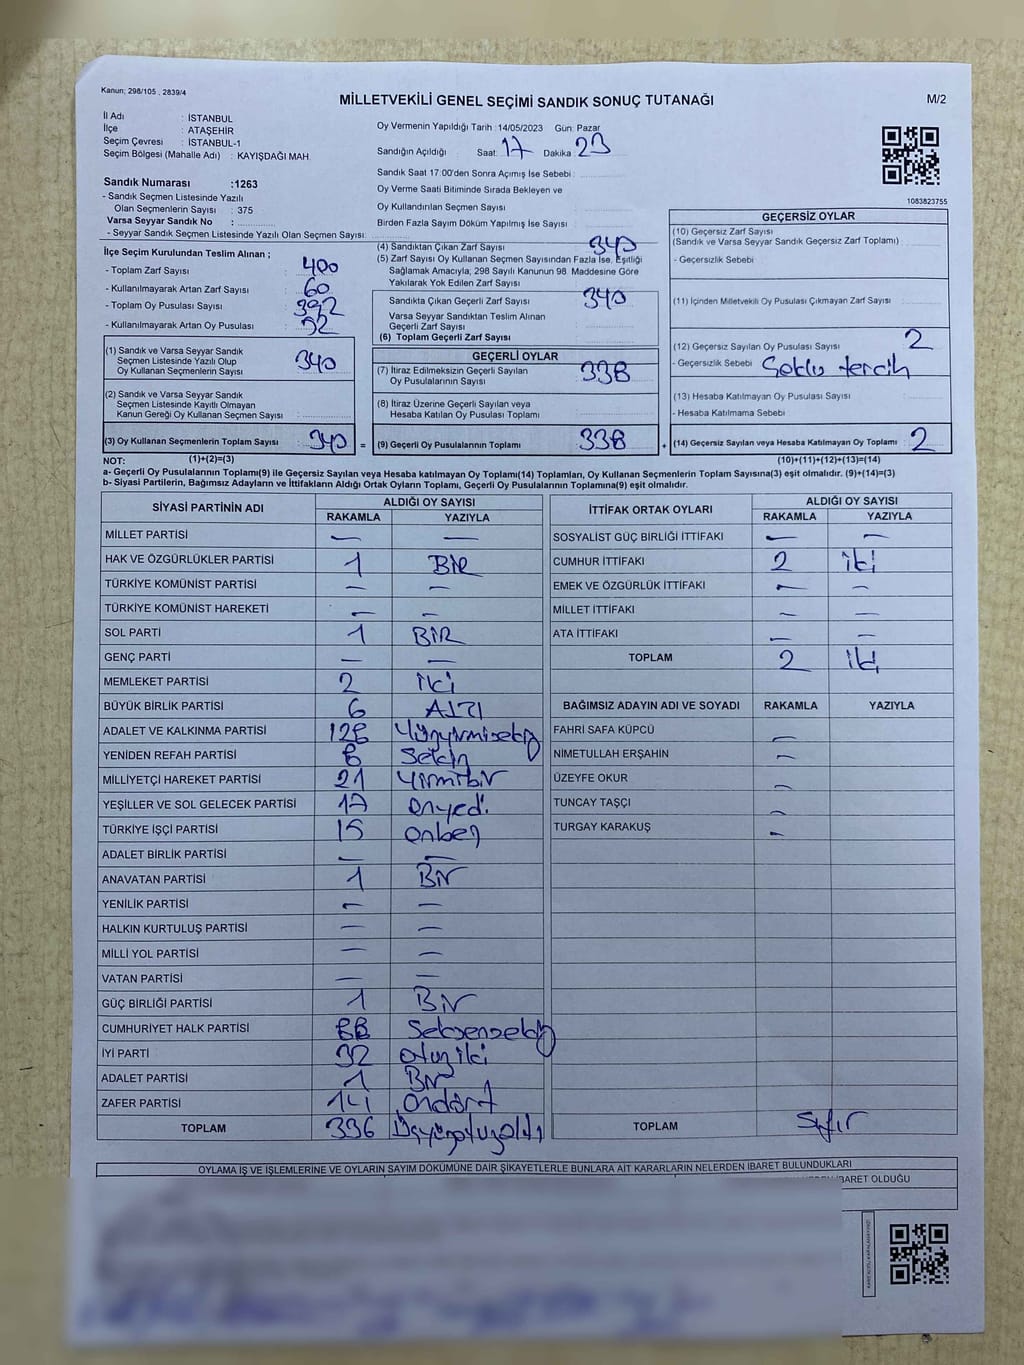 Kanun; 298/105 , 2839/4
MİLLETVEKİLİ GENEL SEÇİMİ SANDIK SONUÇ TUTANAĞI
M/2
İl Adı : İSTANBUL
İlçe : ATAŞEHİR
Seçim Çevresi : İSTANBUL-1
Seçim Bölgesi (Mahalle Adı) : KAYIŞDAĞI MAH.
Sandık Numarası :1263
- Sandık Seçmen Listesinde Yazılı
Olan Seçmenlerin Sayısı : 375
Varsa Seyyar Sandık No :
- Seyyar Sandık Seçmen Listesinde Yazılı Olan Seçmen Sayısı:
Oy Vermenin Yapıldığı Tarih :14/05/2023 Gün: Pazar
Sandığın Açıldığı Saat: 17 Dakika 23
Sandık Saat 17:00'den Sonra Açımış İse Sebebi :
Oy Verme Saati Bitiminde Sırada Bekleyen ve
Oy Kullandırılan Seçmen Sayısı
Birden Fazla Sayım Döküm Yapılmış İse Sayısı
1083823755
İlçe Seçim Kurulundan Teslim Alınan ;
- Toplam Zarf Sayısı : 400
- Kullanılmayarak Artan Zarf Sayısı : 60
- Toplam Oy Pusulası Sayısı : 392
- Kullanılmayarak Artan Oy Pusulası : 52
(1) Sandık ve Varsa Seyyar Sandık
Seçmen Listesinde Yazılı Olup
Oy Kullanan Seçmenlerin Sayısı 340
(2) Sandık ve Varsa Seyyar Sandık
Seçmen Listesinde Kayıtlı Olmayan
Kanun Gereği Oy Kullanan Seçmen Sayısı
(3) Oy Kullanan Seçmenlerin Toplam Sayısı 340 =
(4) Sandıktan Çıkan Zarf Sayısı 340
(5) Zarf Sayısı Oy Kullanan Seçmen Sayısından Fazla İse, Eşitliği
Sağlamak Amacıyla; 298 Sayılı Kanunun 98. Maddesine Göre
Yakılarak Yok Edilen Zarf Sayısı
Sandıkta Çıkan Geçerli Zarf Sayısı 340
Varsa Seyyar Sandıktan Teslim Alınan
Geçerli Zarf Sayısı
(6) Toplam Geçerli Zarf Sayısı
GEÇERLİ OYLAR
(7) İtiraz Edilmeksizin Geçerli Sayılan
Oy Pusulalarının Sayısı 338
(8) İtiraz Üzerine Geçerli Sayılan veya
Hesaba Katılan Oy Pusulası Toplamı
(9) Geçerli Oy Pusulalarının Toplamı 338 +
GEÇERSİZ OYLAR
(10) Geçersiz Zarf Sayısı
(Sandık ve Varsa Seyyar Sandık Geçersiz Zarf Toplamı)
- Geçersizlik Sebebi
(11) İçinden Milletvekili Oy Pusulası Çıkmayan Zarf Sayısı
(12) Geçersiz Sayılan Oy Pusulası Sayısı : 2
- Geçersizlik Sebebi tercih
(13) Hesaba Katılmayan Oy Pusulası Sayısı
- Hesaba Katılmama Sebebi
(14) Geçersiz Sayılan veya Hesaba Katılmayan Oy Toplamı 2
NOT: (1)+(2)=(3) (10)+(11)+(12)+(13)=(14)
a- Geçerli Oy Pusulalarının Toplamı(9) ile Geçersiz Sayılan veya Hesaba katılmayan Oy Toplamı(14) Toplamları, Oy Kullanan Seçmenlerin Toplam Sayısına(3) eşit olmalıdır. (9)+(14)=(3)
b- Siyasi Partilerin, Bağımsız Adayların ve İttifakların Aldığı Ortak Oyların Toplamı, Geçerli Oy Pusulalarının Toplamına(9) eşit olmalıdır.
SİYASİ PARTİNİN ADI ALDIĞI OY SAYISI
RAKAMLA YAZIYLA
MİLLET PARTİSİ — —
HAK VE ÖZGÜRLÜKLER PARTİSİ 1 BİR
TÜRKİYE KOMÜNİST PARTİSİ — —
TÜRKİYE KOMÜNİST HAREKETİ — —
SOL PARTİ 1 BİR
GENÇ PARTİ — —
MEMLEKET PARTİSİ 2 iki
BÜYÜK BİRLİK PARTİSİ 6 ALTI
ADALET VE KALKINMA PARTİSİ 128 Yüzyirmisekiz
YENİDEN REFAH PARTİSİ 8 Sekiz
MİLLİYETÇİ HAREKET PARTİSİ 21 Yirmibir
YEŞİLLER VE SOL GELECEK PARTİSİ 17 Onyedi
TÜRKİYE İŞÇİ PARTİSİ 15 Onbeş
ADALET BİRLİK PARTİSİ — —
ANAVATAN PARTİSİ 1 Bir
YENİLİK PARTİSİ — —
HALKIN KURTULUŞ PARTİSİ — —
MİLLİ YOL PARTİSİ — —
VATAN PARTİSİ — —
GÜÇ BİRLİĞİ PARTİSİ 1 Bir
CUMHURİYET HALK PARTİSİ 88 Seksensekiz
İYİ PARTİ 32 Otuziki
ADALET PARTİSİ 1 Bir
ZAFER PARTİSİ 14 Ondört
TOPLAM 336 Üçyüzotuzaltı
İTTİFAK ORTAK OYLARI ALDIĞI OY SAYISI
RAKAMLA YAZIYLA
SOSYALİST GÜÇ BİRLİĞİ İTTİFAKI — —
CUMHUR İTTİFAKI 2 iki
EMEK VE ÖZGÜRLÜK İTTİFAKI — —
MİLLET İTTİFAKI — —
ATA İTTİFAKI — —
TOPLAM 2 iki
BAĞIMSIZ ADAYIN ADI VE SOYADI RAKAMLA YAZIYLA
FAHRİ SAFA KÜPCÜ —
NİMETULLAH ERŞAHİN —
ÜZEYFE OKUR —
TUNCAY TAŞÇI —
TURGAY KARAKUŞ —
TOPLAM Sıfır
OYLAMA İŞ VE İŞLEMLERİNE VE OYLARIN SAYIM DÖKÜMÜNE DAİR ŞİKAYETLERLE BUNLARA AİT KARARLARIN NELERDEN İBARET BULUNDUKLARI
İBARET OLDUĞU